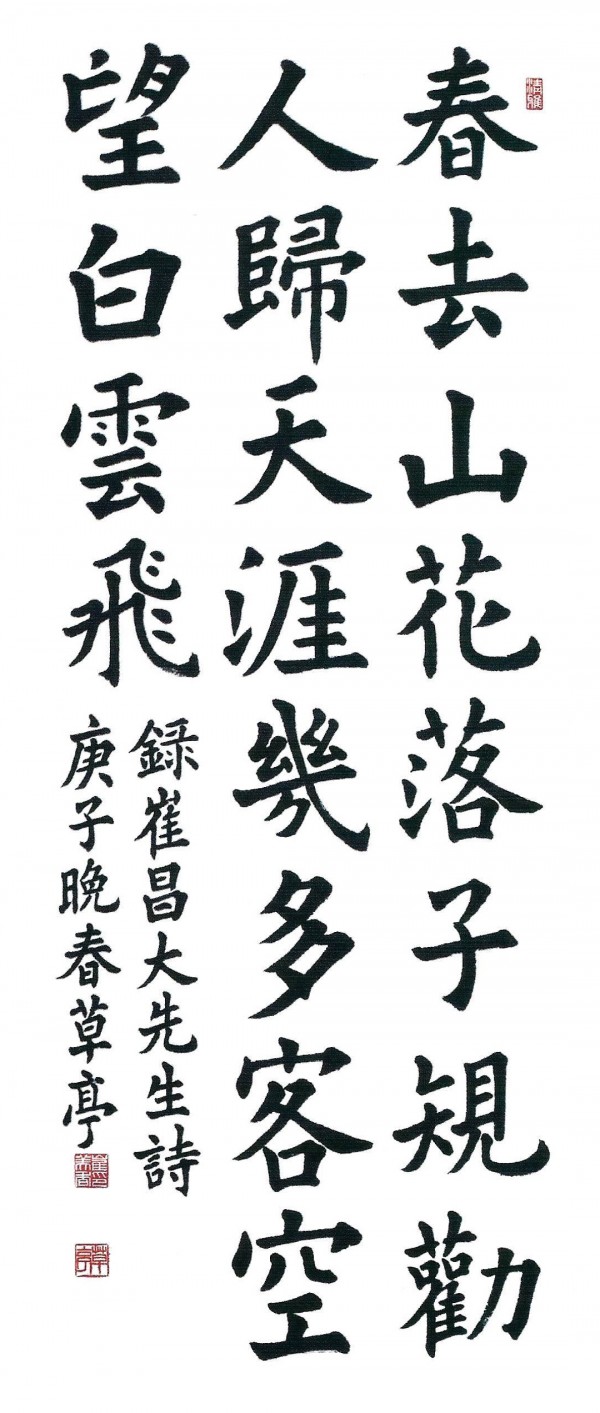 春去山花落子規勸
人歸天涯幾多客空
望白雲飛
録崔昌大先生詩
庚子晚春草亭